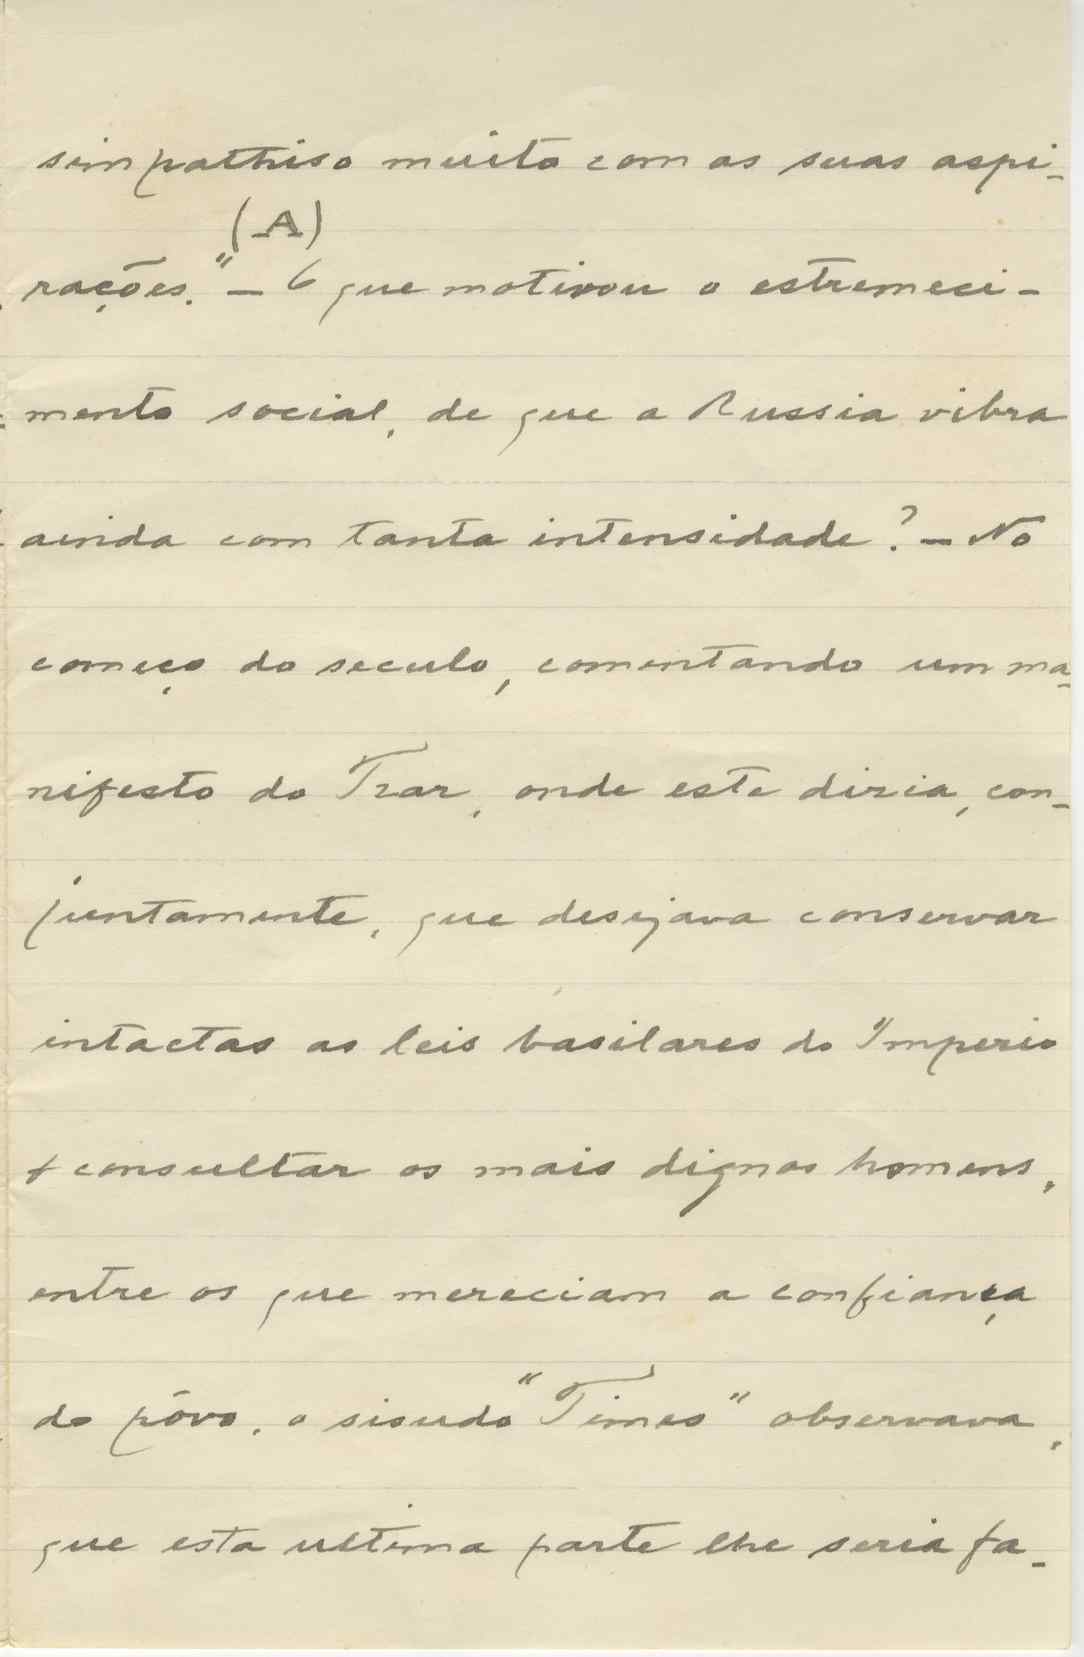 simpathiso muito com as suas aspi-
(A)
rações." — O que motivou o estremeci-
mento social, de que a Russia vibra
ainda com tanta intensidade? — No
começo do seculo, comentando um ma-
nifesto do Tzar, onde este dizia, con-
juntamente, que desejava conservar
intactas as leis basilares do Imperio
e consultar os mais dignos homens,
entre os que mereciam a confiança
do pôvo, o sisudo "Times" observava,
que esta ultima parte lhe seria fa-